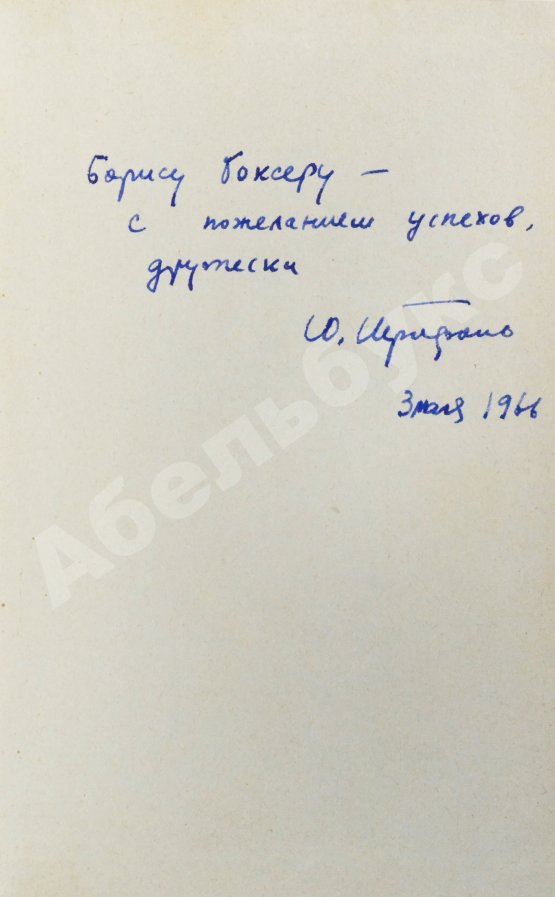 Борису Боксеру —
с пожеланием успехов,
дружески
Ю.
3 мая 1966
Абельбукс